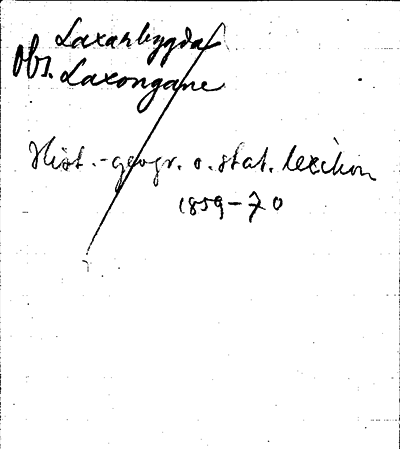 Laxarbygda
Obs. Laxongane
Hist.-geogr. o. stat. lexikon
1859-70